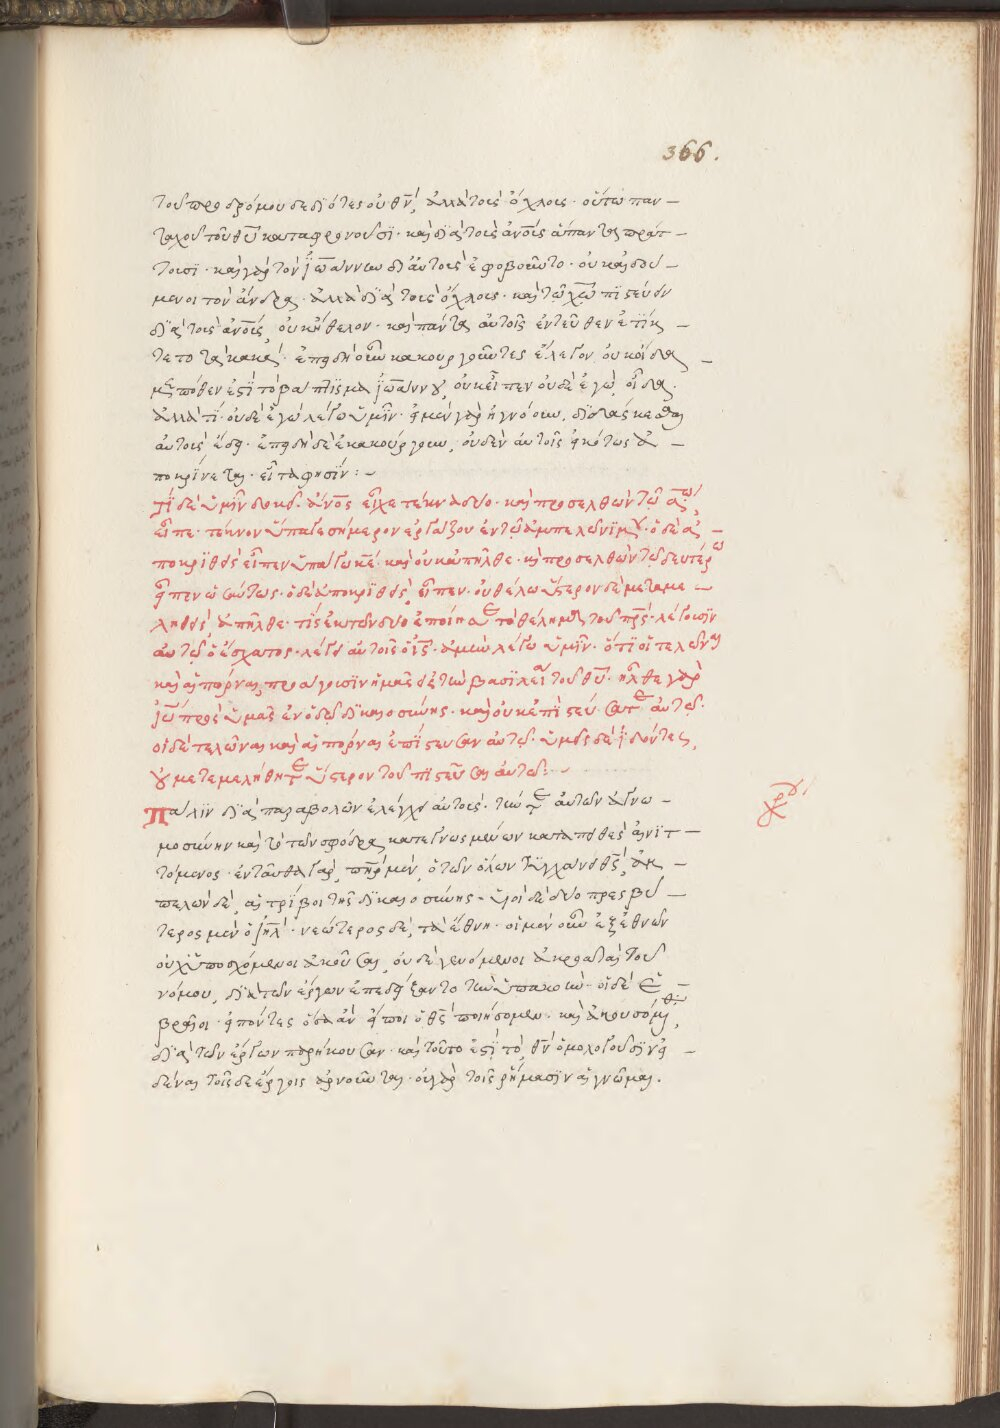 366.
τοῦ προδρόμου δεδιότες οὐ θν̄, ἀλλὰ τοὺς ὄχλους· οὕτω παν –
ταχοῦ τοῦ θῡ καταφρονοῦσι· καὶ διὰ τοὺς ἀνοῦς ἅπαντα πράτ –
τουσι· καὶ γὰρ τὸν ἰωάννην δι' αὐτοὺς ἐφοβοῦντο· οὐκ αἰδού –
μενοι τὸν ἄνδρα· ἀλλὰ διὰ τοὺς ὄχλους· καὶ τῷ χω̄ πιστεύειν
διὰ τοὺς ἀνοῦς, οὐκ ἤθελον· καὶ πάντα αὐτοῖς ἐντεῦθεν ἐτίκ –
τετο τὰ κακά· ἐπειδὴ οὖν κακουργοῦντες ἔλεγον, οὐκ οἴδα –
μεν πόθεν ἐστὶ τὸ βάπτισμα ἰωάννου, οὐκ εἶπεν οὐδὲ ἐγὼ οἶδα·
ἀλλὰ τί· οὐδὲ ἐγὼ λέγω ὑμῖν· εἰ μὲν γὰρ ἠγνόουν, διδάσκεσθαι
αὐτοὺς ἔδει· ἐπειδὴ δὲ ἐκακούργουν, οὐδὲν αὐτοῖς εἰκότως ἀ –
ποκρίνεται· εἶτα φησίν: –
Τί δὲ ὑμῖν δοκεῖ· ἄνος εἶχε τέκνα δύο· καὶ προσελθὼν τῷ αω,
εἶπε· τέκνον ὕπαγε σήμερον ἐργάζου ἐν τῷ ἀμπελῶνί μου· ὁ δὲ ἀ –
ποκριθεὶς εἶπεν ὑπάγω κε̄· καὶ οὐκ ἀπῆλθε· καὶ προσελθὼν τῷ δευτέρω
εἶπεν ὡσαύτως· ὁ δὲ ἀποκριθεὶς, εἶπεν· οὐ θέλω ὕστερον δὲ μεταμε –
ληθεὶς, ἀπῆλθε· τίς ἐκ τῶν δύο ἐποίησε τὸ θέλημα τοῦ πρς̄· λέγουσιν
αὐτῷ ὁ ἔσχατος· λέγει αὐτοῖς ὁ ις̄· ἀμὴν λέγω ὑμῖν· ὅτι οἱ τελῶναι
καὶ αἱ πόρναι, προάγουσιν ἡμᾶς εἰς τὴν βασιλείαν τοῦ θῡ· ἦλθε γὰρ
ἰω̄ πρὸς ὑμᾶς ἐν ὁδῷ δικαιοσύνης· καὶ οὐκ ἐπιστεύσατε αὐτῷ·
οἱ δὲ τελῶναι καὶ αἱ πόρναι ἐπίστευσαν αὐτῷ· ὑμεῖς δὲ ἰδόντες,
οὐ μετεμελήθητε ὕστερον τοῦ πιστεῦσαι αὐτῷ: –
Πάλιν διὰ παραβολῶν ἐλέγχει αὐτοὺς· τήν τε αὐτῶν ἀγνω –
μοσύνην καὶ τὸ τῶν σφόδρα κατεγνωσμένων καταπειθὲς αἰνιτ –
τόμενος· ἐνταῦθα γὰρ, πηρ μὲν, ὁ τῶν ὅλων θς̄,
πελὼν δὲ, αἱ τρίβοι τῆς δικαιοσύνης· υἱοὶ δὲ δύο πρεσβύ –
τερος μὲν ὁ ιηλ̄· νεώτερος δὲ, τὰ ἔθνη· οἱ μὲν οὖν ἐξ ἐθνῶν
οὐχ ὑποσχόμενοι ἀκοῦσαι, οὐδὲ γενόμενοι ἀκροαταὶ τοῦ
νόμου, διὰ τῶν ἔργων ἐπεδείξαντο τὴν ὑπακοὴν· οἱ δὲ ἑ –
βραῖοι· εἰπόντες ὅσα ἂν εἴποι ὁ θς̄ ποιήσομεν· καὶ ἀκουσόμεθα,
διὰ τῶν ἔργων παρήκουσαν· καὶ τοῦτο ἐστὶ τὸ, θν̄ ὁμολογοῦσιν εἰ –
δέναι τοῖς δὲ ἔργοις ἀρνοῦνται· οὐ γὰρ τοῖς ῥήμασιν αἱ γνῶμαι.